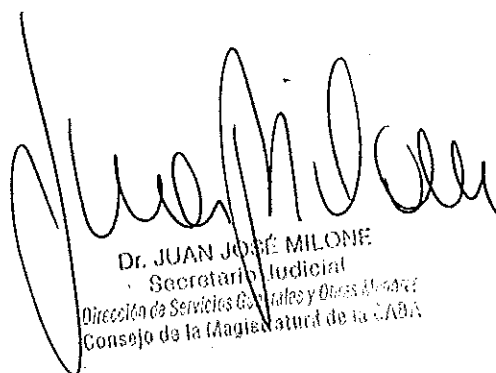 Dr. JUAN JOSÉ MILONE
Secretario Judicial
Dirección de Servicios Generales y Obras Menores
Consejo de la Magistratura de la CABA